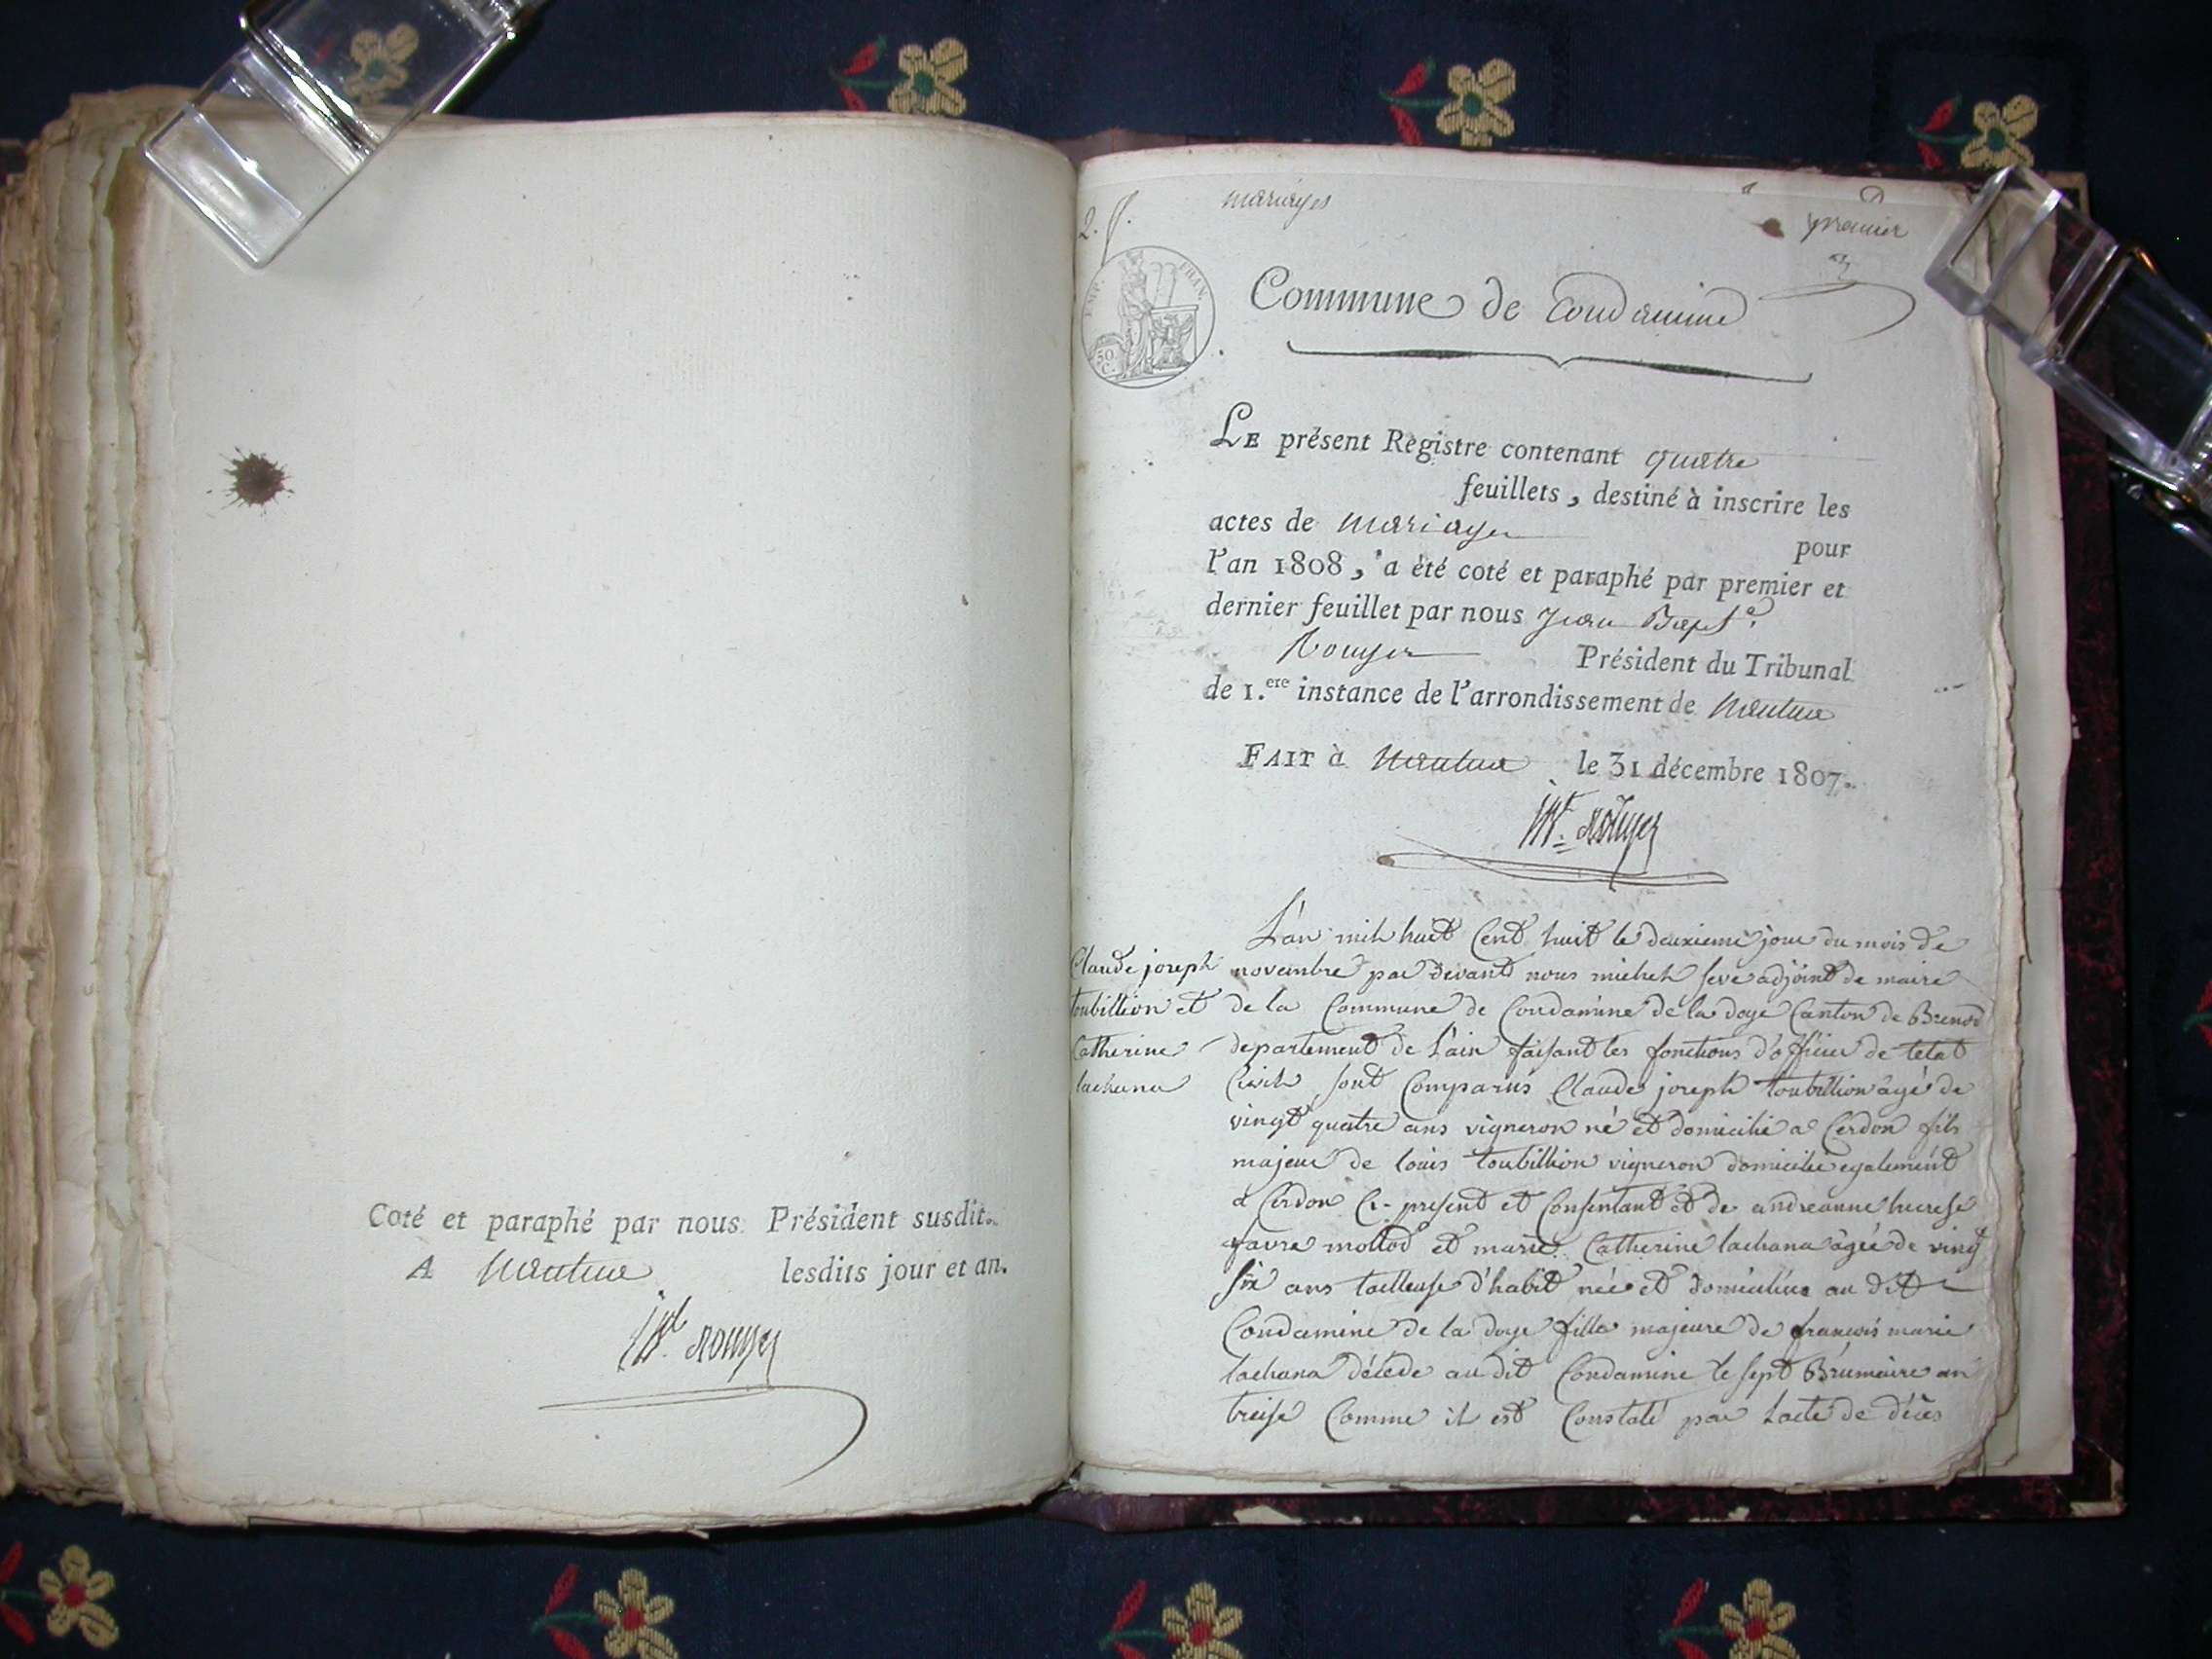 Coté et paraphé par nous Président susdit.
A Nantua lesdits jour et an.
J.Bte Rouyer
2.f.
mariages
premier
EMP. FRAN.
50 C.
Commune de Condamine
LE présent Registre contenant quatre
feuillets, destiné à inscrire les
actes de mariages pour
l'an 1808, a été coté et paraphé par premier et
dernier feuillet par nous Jean Bapte.
Rouyer Président du Tribunal
de 1.ere instance de l'arrondissement de Nantua
FAIT à Nantua le 31 décembre 1807.
Rouyer
Claude joseph
toubillion et
Catherine
lachana
L'an mil huit Cent huit le deuxieme jour du mois de
novembre par devant nous michel seve adjoint de maire
de la Commune de Condamine de la doye Canton de Brenod
departement de L'ain faisant les fonctions d'officier de letat
Civil, sont Comparus Claude joseph toubillion âgé de
vingt quatre ans vigneron né et domicilié a Cerdon fils
majeur de louis toubillion vigneron domicilié egalement
a Cerdon Ci-present et Consentant et de andreanne
favre mollod et marie Catherine lachana âgée de vingt
six ans tailleuse d'habit née et domiciliée au dit
Condamine de la doye fille majeure de françois marie
lachana décédé au dit Condamine le sept Brumaire an
treise Comme il est Constaté par Lacte de décès